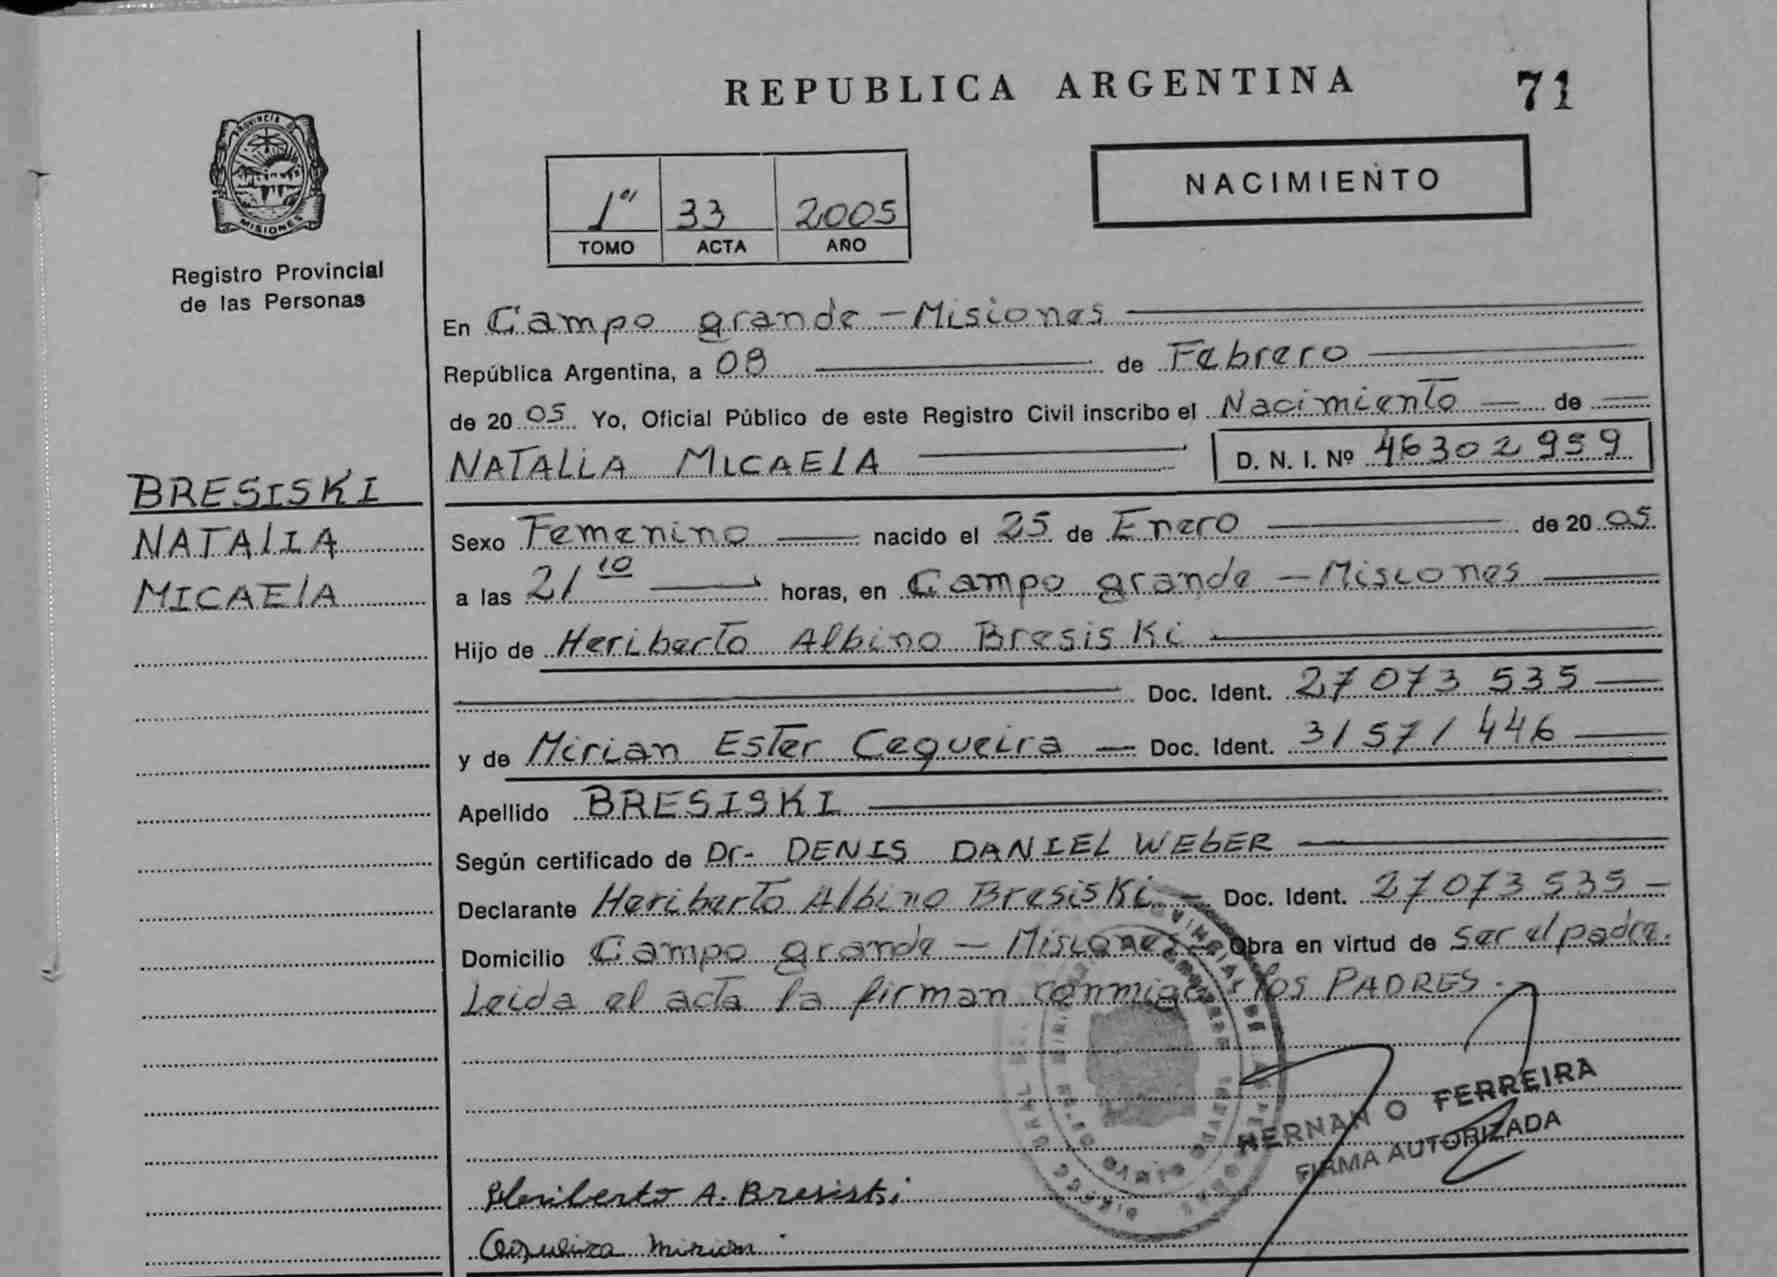 REPUBLICA ARGENTINA 71
PROVINCIA DE MISIONES
Registro Provincial
de las Personas
1º 33 2005
TOMO ACTA AÑO
NACIMIENTO
En Campo grande - Misiones
República Argentina, a 08 de Febrero
de 20 05 Yo, Oficial Público de este Registro Civil inscribo el Nacimiento de
NATALIA MICAELA D. N. I. Nº 46302959
BRESISKI
NATALIA
MICAELA
Sexo Femenino nacido el 25 de Enero de 20 05
a las 21 10 horas, en Campo grande - Misiones
Hijo de Heriberto Albino Bresiski
Doc. Ident. 27073535
y de Mirian Ester Cequeira Doc. Ident. 31571446
Apellido BRESISKI
Según certificado de Dr. DENIS DANIEL WEBER
Declarante Heriberto Albino Bresiski Doc. Ident. 27073535
Domicilio Campo grande - Misiones Obra en virtud de ser el padre.
Leida el acta la firman conmigo los PADRES.
HERNAN O FERREIRA
FIRMA AUTORIZADA
Heriberto A. Bresiski
Cequeira Mirian